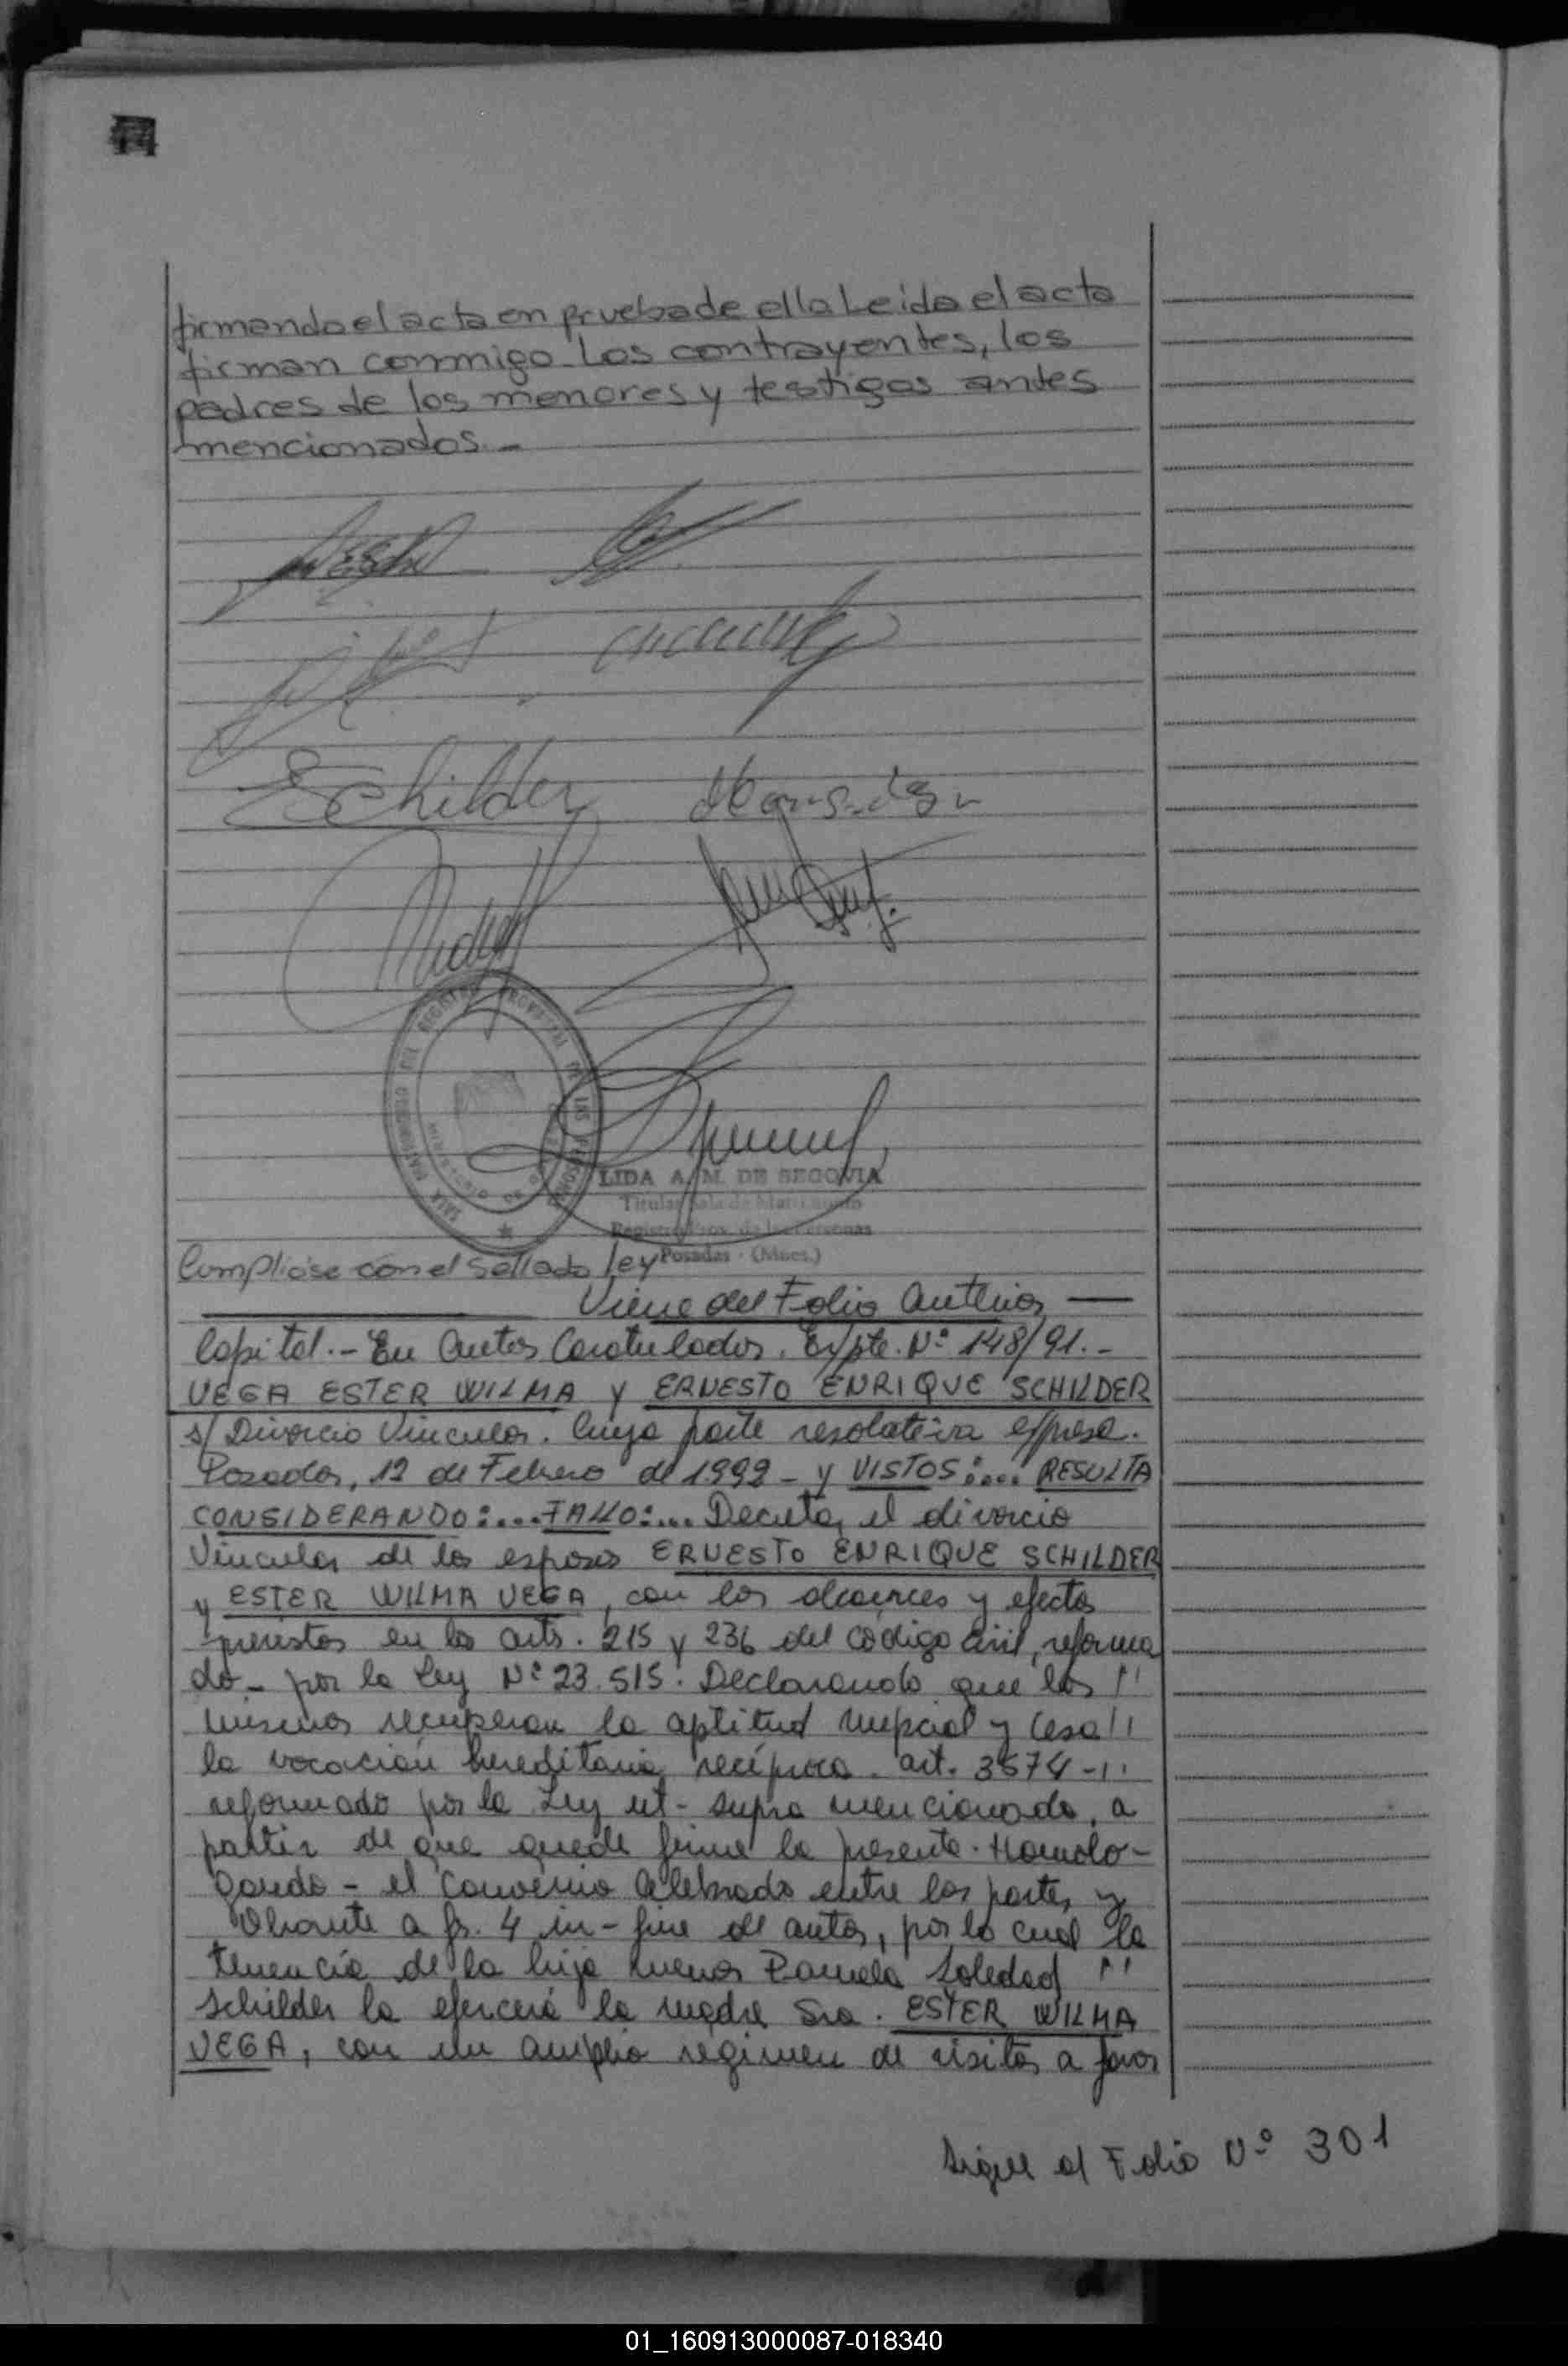 firmando el acta en prueba de ello Leida el acta
firman conmigo los contrayentes, los
padres de los menores y testigos antes
mencionados.-
Schilder
LIDA A. M. DE SEGOVIA
Titular Sala de Matrimonio
Registro Prov. de las Personas
Posadas - (Mnes.)
Cumpliose con el Sellado ley
Viene del Folio Anterior —
Capital.- En Autos Caratulados. Expte. Nº 148/91.-
VEGA ESTER WILMA y ERNESTO ENRIQUE SCHILDER
s/ Divorcio Vincular. Cuya parte resolutiva expresa.
Posadas, 12 de Febrero de 1992 - y VISTOS:.... RESULTA
CONSIDERANDO:....FALLO:.... Decretar el divorcio
Vincular de los esposos ERNESTO ENRIQUE SCHILDER
y ESTER WILMA VEGA, con los alcances y efectos
previstos en los arts. 215 y 236 del código civil, reforma
do - por la Ley Nº 23.515. Declarando que los ''
mismos recuperan la aptitud nupcial y cesa ''
la vocación hereditaria recíproca. art. 3574 - ''
reformado por la Ley ut - supra mencionada, a
partir de que quede firme la presente. Homolo-
gando - el convenio celebrado entre las partes y
Obrante a fs. 4 in - fine de autos, por lo cual la
tenencia de la hija menor Pamela Soledad ''
Schilder la ejercerá la madre Sra. ESTER WILMA
VEGA, con un amplio regimen de visitas a favor
Sigue al Folio Nº 301
01_160913000087-018340